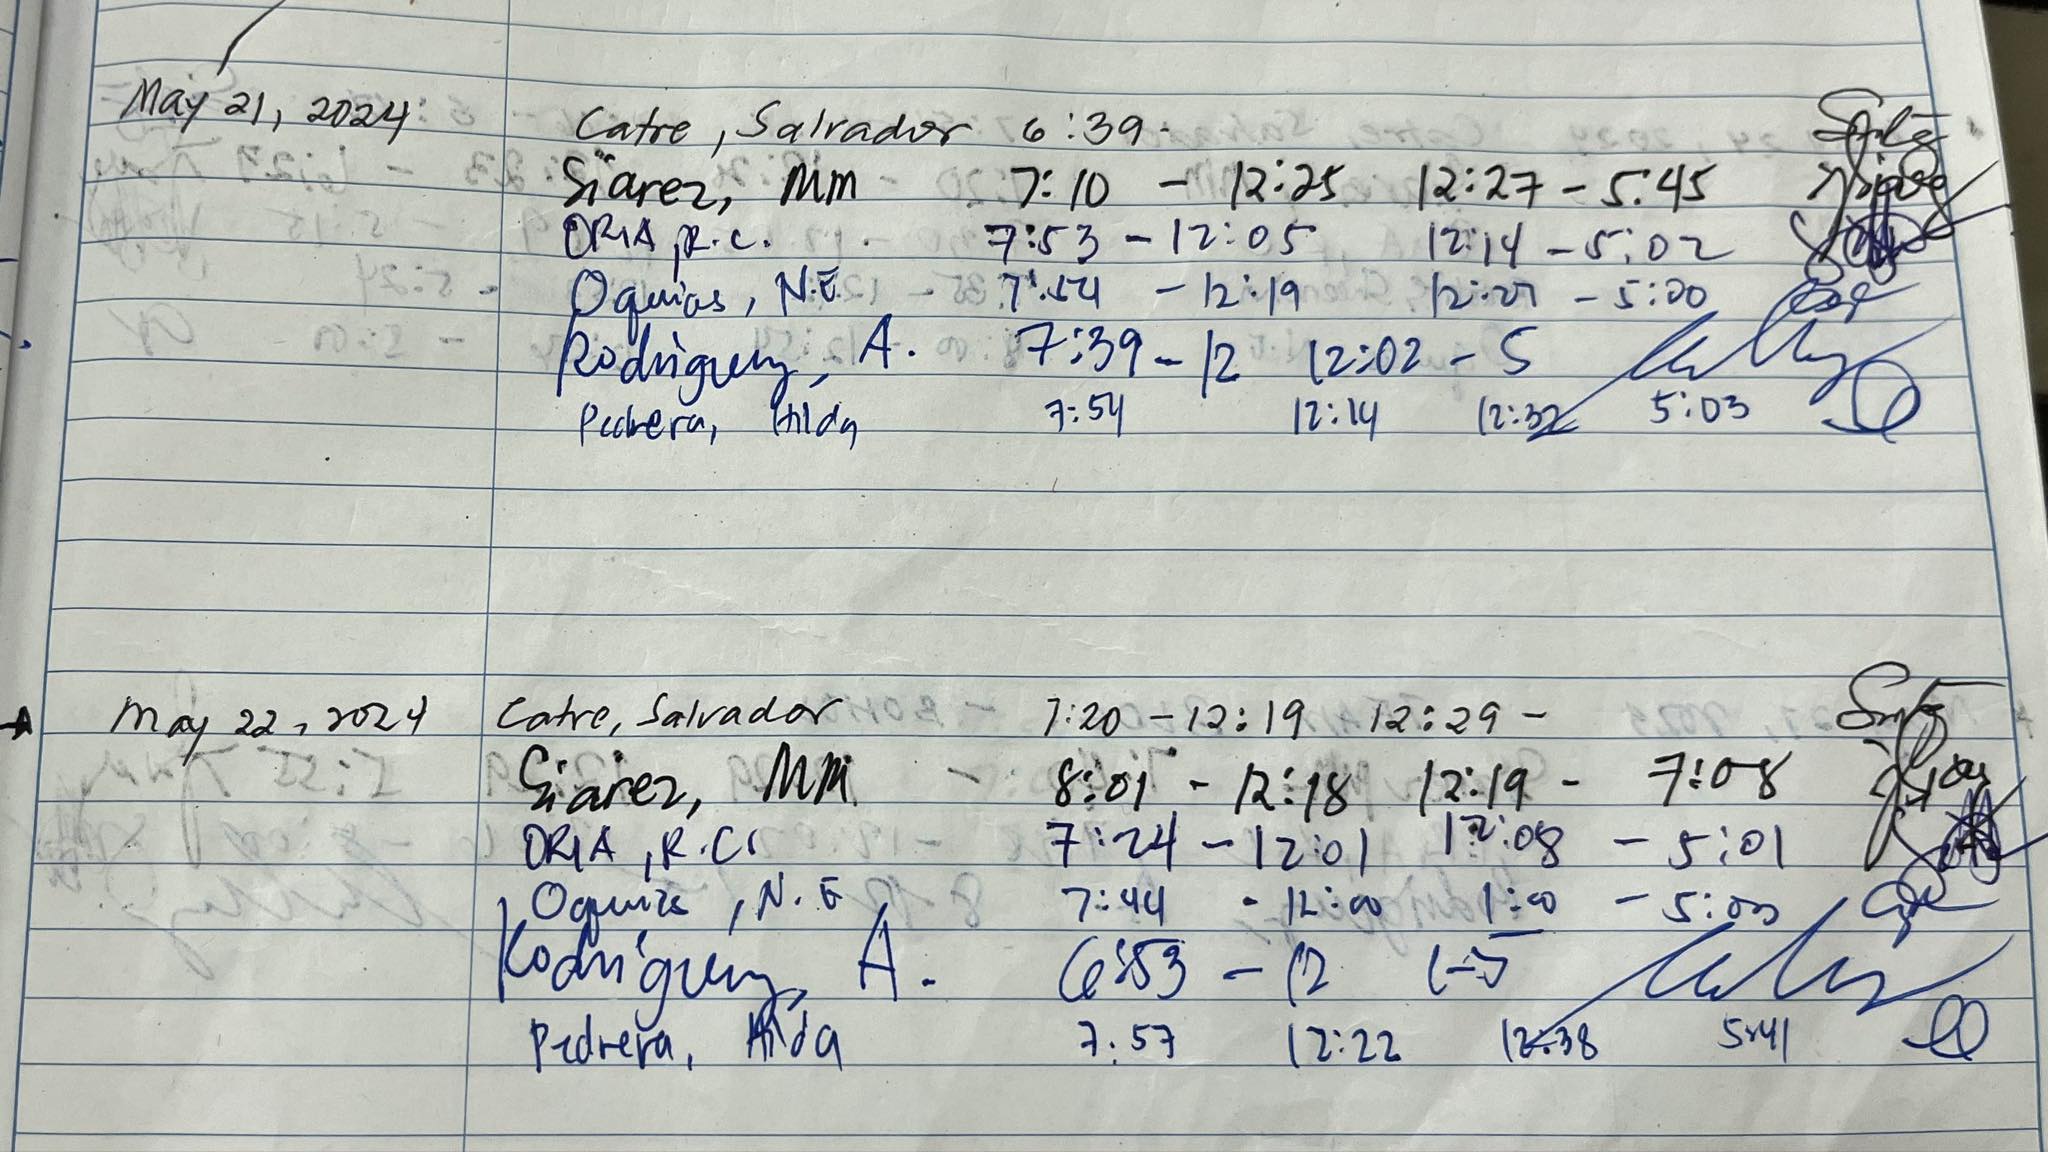 May 21, 2024 Catre, Salvador 6:39 -
Siarez, MM 7:10 - 12:25 12:27 - 5:45
ORIA, R.C. 7:53 - 12:05 12:14 - 5:02
Oquias, N.E 7:54 - 12:19 - 5:00
Rodriguez, A. 7:39 - 12 12:02 - 5
Pedrera, Hilda 7:54 12:14 12:32 5:03
May 22, 2024 Catre, Salvador 7:20 - 12:19 12:29 -
Siarez, MM 8:01 - 12:18 12:19 - 7:08
ORIA, R.C. 7:24 - 12:01 12:08 - 5:01
Oquias, N.E 7:44 - 12:00 1:00 - 5:00
Rodriguez, A. 6:53 - 12 1-5
Pedrera, Hilda 7:57 12:22 12:38 5:41